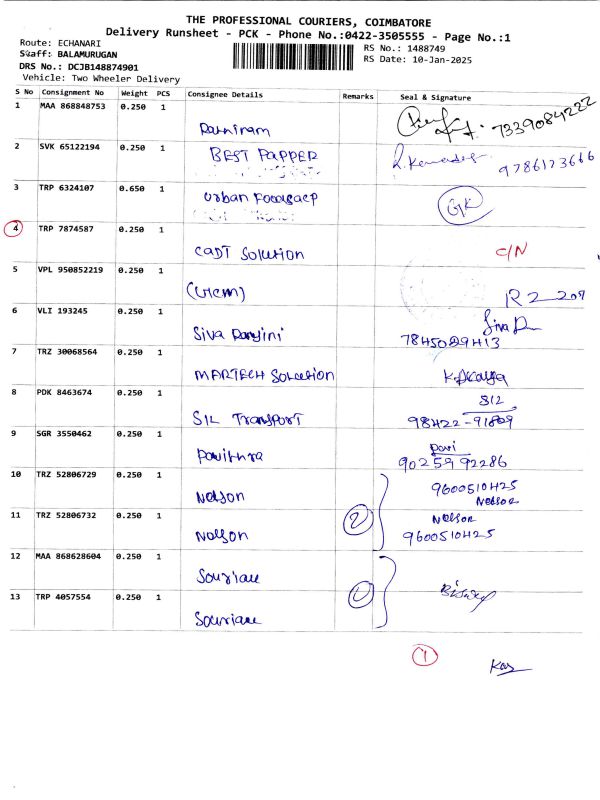 THE PROFESSIONAL COURIERS, COIMBATORE
Delivery Runsheet - PCK - Phone No.:0422-3505555 - Page No.:1
Route: ECHANARI
RS No.: 1488749
Staff: BALAMURUGAN
RS Date: 10-Jan-2025
DRS No.: DCJB148874901
Vehicle: Two Wheeler Delivery
S No Consignment No Weight PCS Consignee Details Remarks Seal & Signature
1 MAA 868848753 0.250 1 7339084282
2 SVK 65122194 0.250 1 BEST PAPPER 9786173666
3 TRP 6324107 0.650 1 Urban
4 TRP 7874587 0.250 1 CADT Solution C/N
5 VPL 950852219 0.250 1 R2 207
6 VLI 193245 0.250 1 Siva Ranjini Siva
7845029413
7 TRZ 30068564 0.250 1 MARTECH Solution
8 PDK 8463674 0.250 1 SIL Transport
98422-91809
9 SGR 3550462 0.250 1 Pavithra Pavi
9025992286
10 TRZ 52806729 0.250 1 Nelson 9600510425
Nelson
11 TRZ 52806732 0.250 1 Nelson 2 Nelson
9600510425
12 MAA 868628604 0.250 1
13 TRP 4057554 0.250 1 1
1